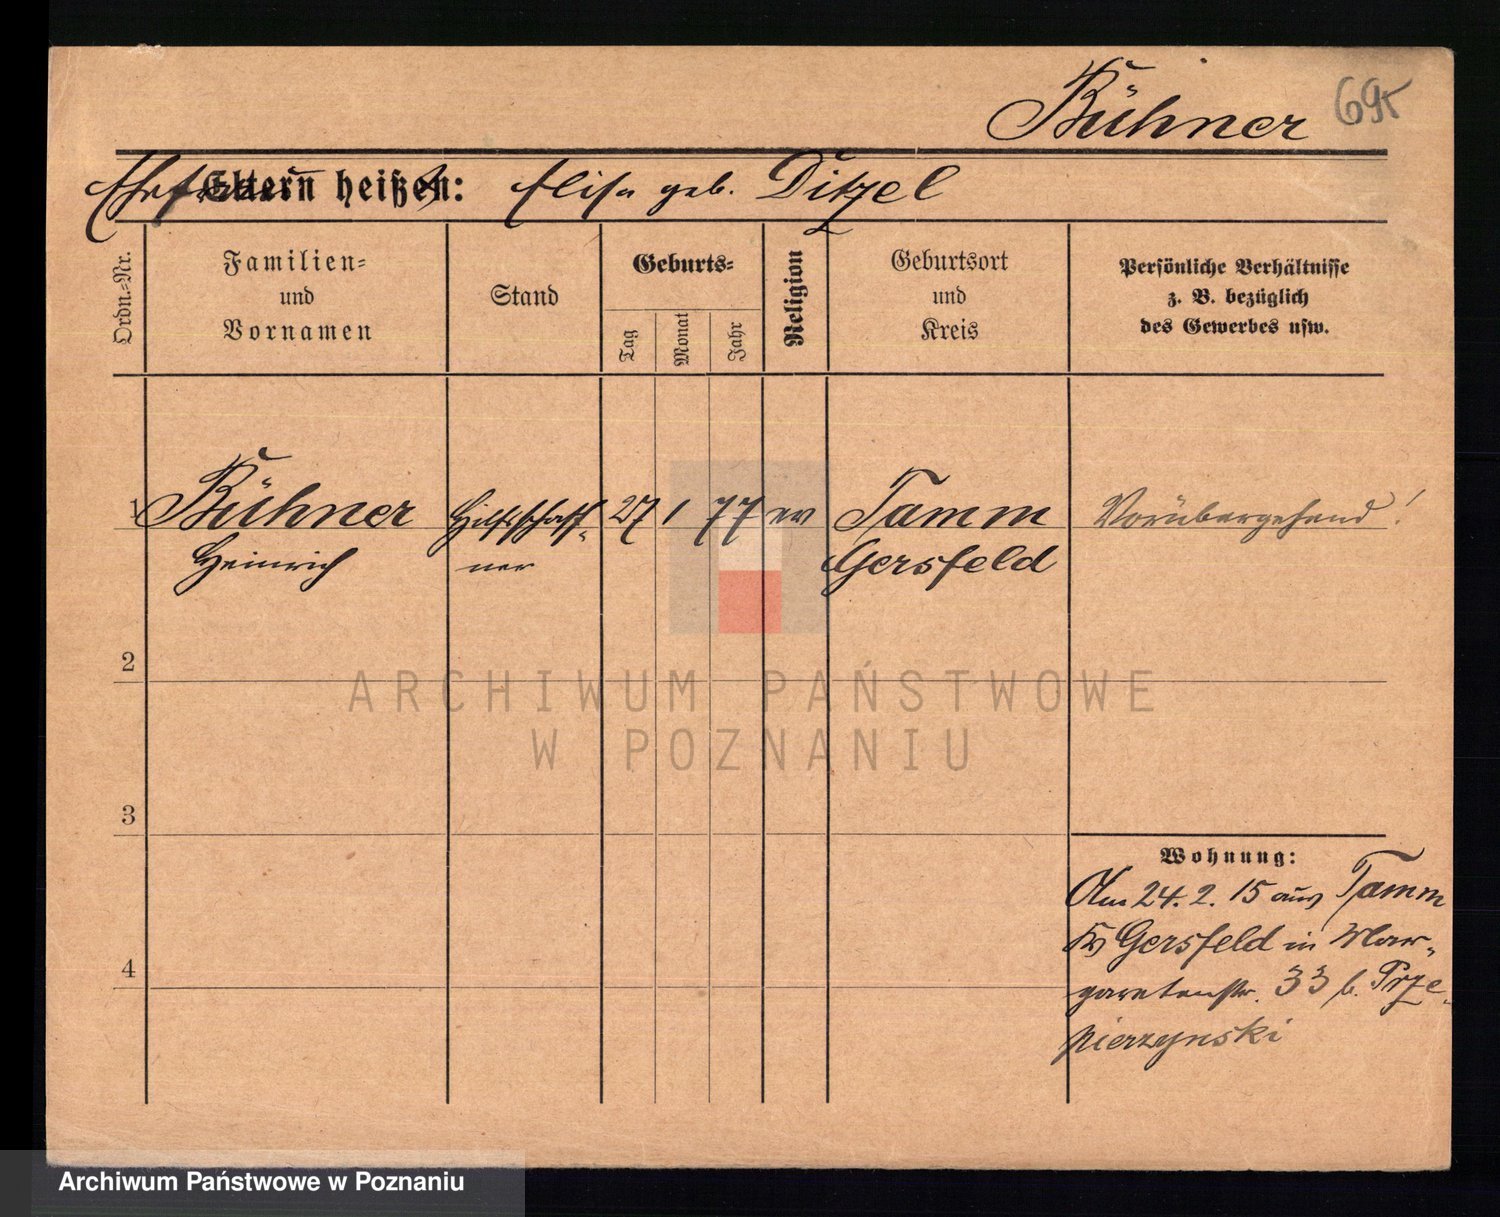 Bühner 695
Eltern heißen:
Ehefrau Elisa geb. Ditzel
Ordn.-Nr.
Familien-
und
Vornamen
Stand
Geburts-
Tag
Monat
Jahr
Religion
Geburtsort
und
Kreis
Persönliche Verhältnisse
z. B. bezüglich
des Gewerbes usw.
1 Bühner Hilfsschaff- 27 1 77 ev Tamm Vorübergehend!
Heinrich ner Gersfeld
2
ARCHIWUM PAŃSTWOWE
W POZNANIU
3
Wohnung:
Am 24. 2. 15 aus Tamm
Kr Gersfeld in Mar-
garetenstr. 33 b. Prze-
pierzynski
4
Archiwum Państwowe w Poznaniu